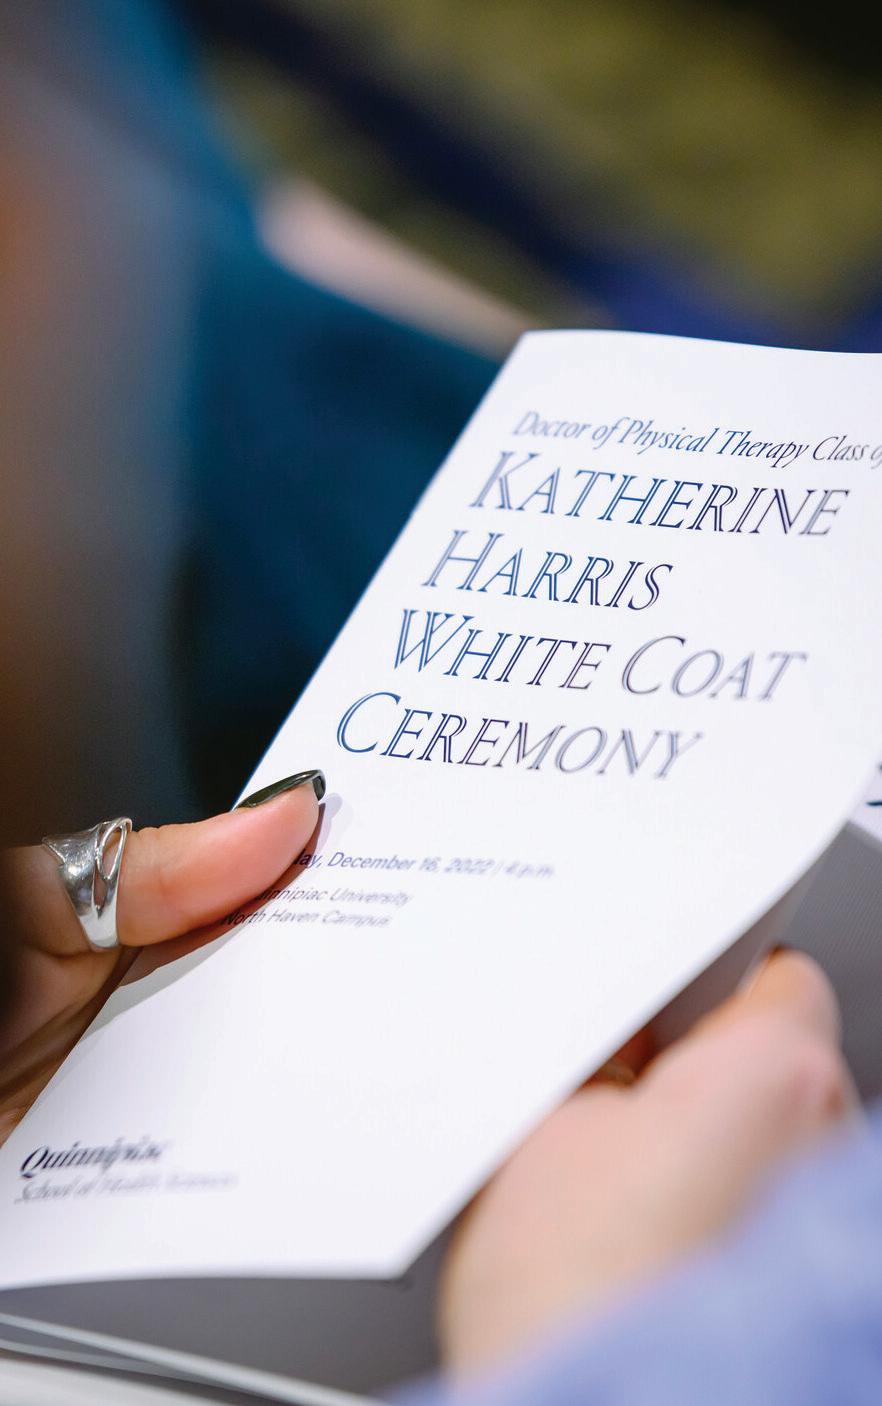 Doctor of Physical Therapy Class of
KATHERINE
HARRIS
WHITE COAT
CEREMONY
December 16, 2022 | 4 p.m.
University
North Haven Campus
Quinnipiac
School of Health Sciences